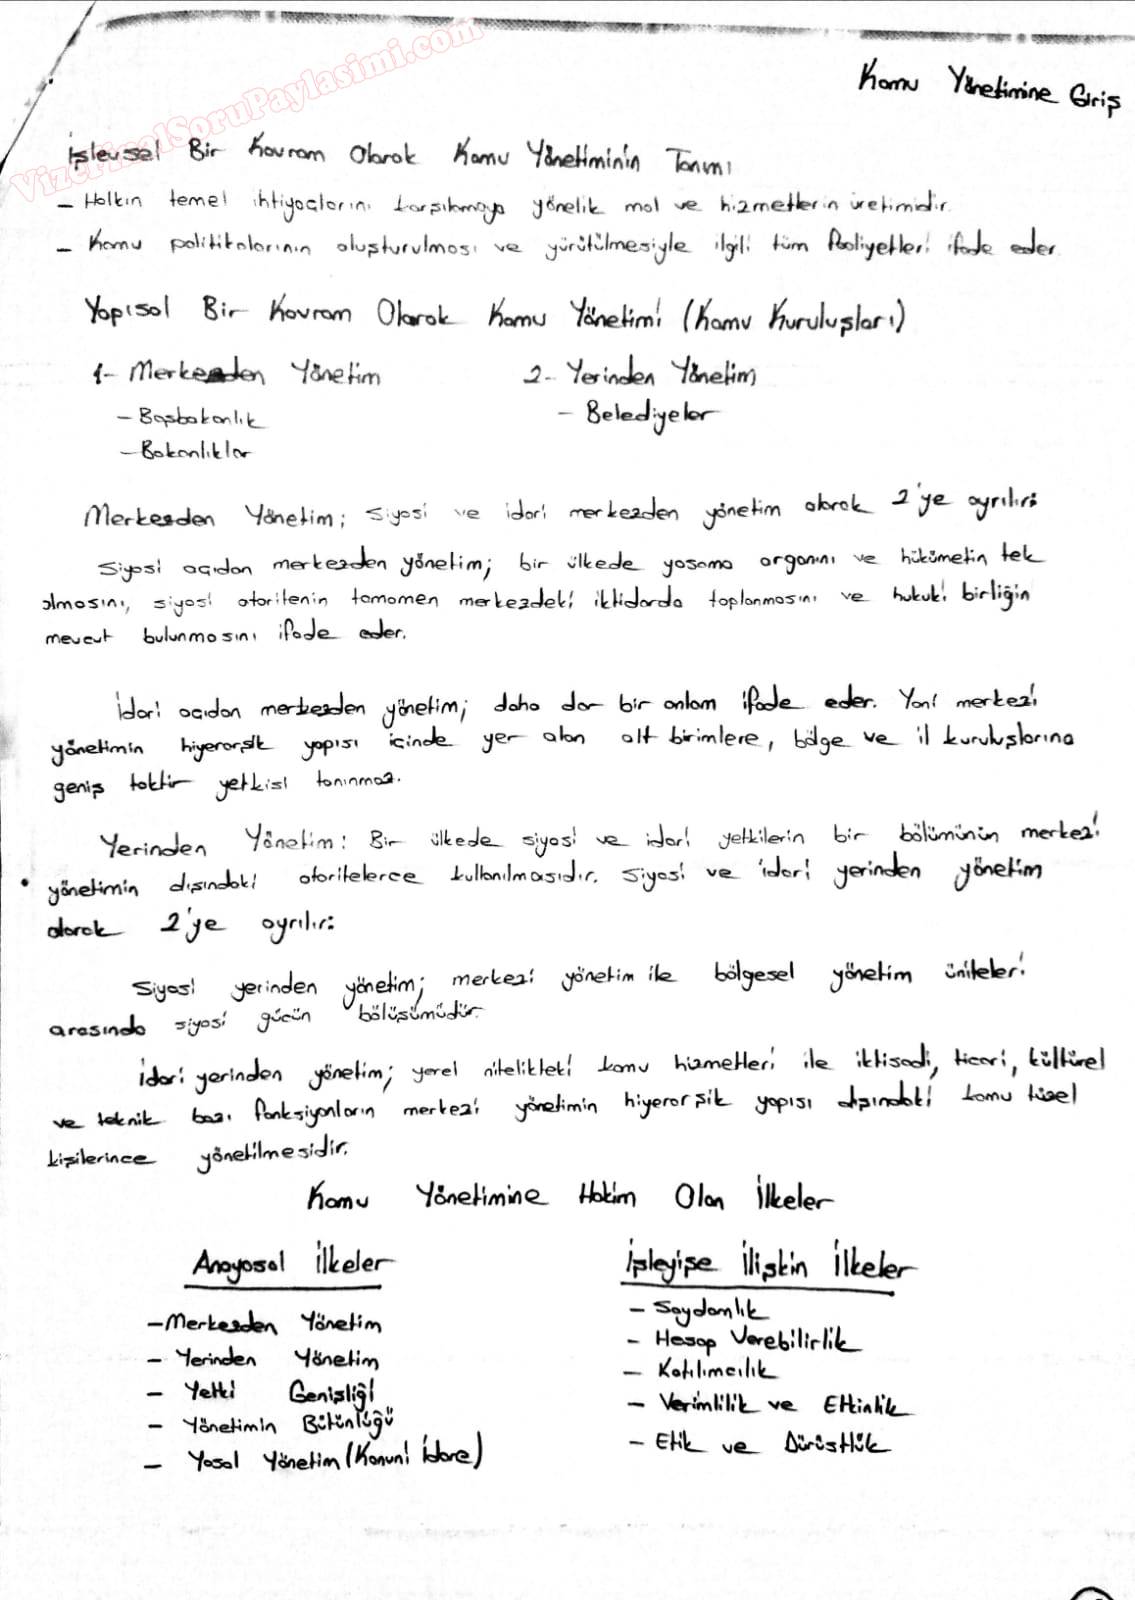 VizeFinalSoruPaylasimi.com
Kamu Yönetimine Giriş
İşlevsel Bir Kavram Olarak Kamu Yönetiminin Tanımı
– Halkın temel ihtiyaçlarını karşılamaya yönelik mal ve hizmetlerin üretimidir.
– Kamu politikalarının oluşturulması ve yürütülmesiyle ilgili tüm faaliyetleri ifade eder.
Yapısal Bir Kavram Olarak Kamu Yönetimi (Kamu Kuruluşları)
1- Merkezden Yönetim 2- Yerinden Yönetim
– Başbakanlık – Belediyeler
– Bakanlıklar
Merkezden Yönetim; siyasi ve idari merkezden yönetim olarak 2'ye ayrılır:
Siyasi açıdan merkezden yönetim; bir ülkede yasama organını ve hükümetin tek
olmasını, siyasi otoritenin tamamen merkezdeki iktidarda toplanmasını ve hukuki birliğin
mevcut bulunmasını ifade eder.
İdari açıdan merkezden yönetim; daha dar bir anlam ifade eder. Yani merkezi
yönetimin hiyerarşik yapısı içinde yer alan alt birimlere, bölge ve il kuruluşlarına
geniş taktir yetkisi tanınmaz.
Yerinden Yönetim: Bir ülkede siyasi ve idari yetkilerin bir bölümünün merkezi
yönetimin dışındaki otoritelerce kullanılmasıdır. Siyasi ve idari yerinden yönetim
olarak 2'ye ayrılır:
Siyasi yerinden yönetim; merkezi yönetim ile bölgesel yönetim üniteleri
arasında siyasi gücün bölüşümüdür.
İdari yerinden yönetim; yerel nitelikteki kamu hizmetleri ile iktisadi, ticari, kültürel
ve teknik bazı fonksiyonların merkezi yönetimin hiyerarşik yapısı dışındaki kamu tüzel
kişilerince yönetilmesidir.
Kamu Yönetimine Hakim Olan İlkeler
Anayasal İlkeler İşleyişe İlişkin İlkeler
– Merkezden Yönetim – Saydamlık
– Yerinden Yönetim – Hesap Verebilirlik
– Yetki Genişliği – Katılımcılık
– Yönetimin Bütünlüğü – Verimlilik ve Etkinlik
– Yasal Yönetim (Kanuni İdare) – Etik ve Dürüstlük